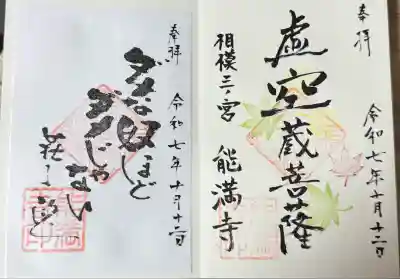 奉拝
令和七年十月十二日
虚空蔵菩薩
相模三ノ宮 能満寺
奉拝
令和七年十月十二日
ダメな奴ほど
ダメじゃ
ない